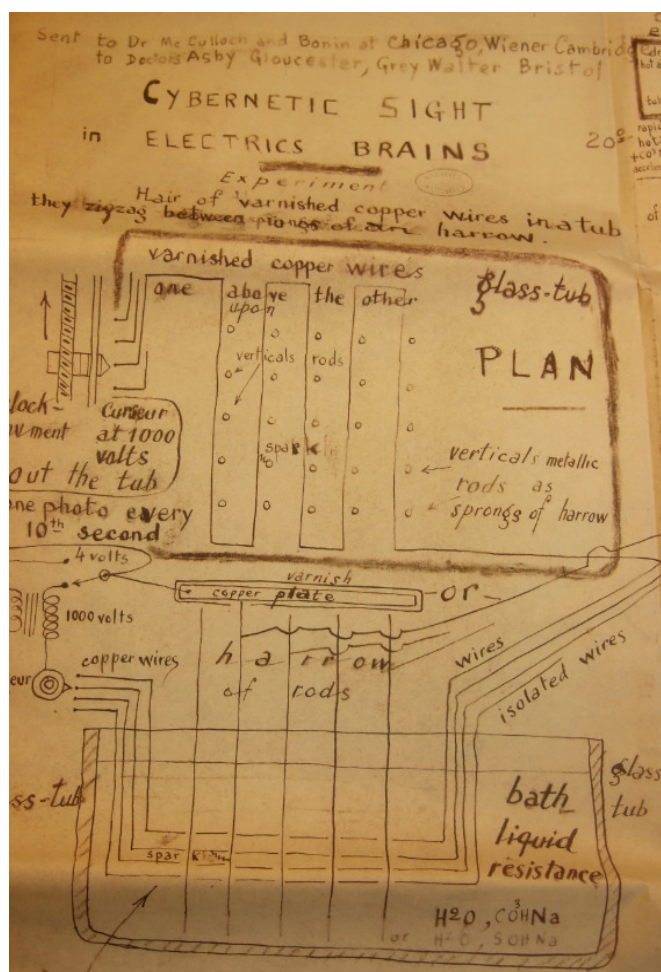 Sent to Dr Mc Culloch and Bonin at Chicago, Wiener Cambridge
to Doctors Asby Gloucester, Grey Walter Bristol
CYBERNETIC SIGHT
in ELECTRICS BRAINS
20
Experiment
Hair of varnished copper wires in a tub
they zigzag between prongs of an harrow.
varnished copper wires
one above the other
upon
glass-tub
PLAN
verticals rods
spark
verticals metallic
rods as
sprongs of harrow
lock-
vment
Curseur
at 1000
volts
out the tub
one photo every
10th second
4 volts
1000 volts
varnish
copper plate
or
copper wires
harrow
of rods
wires
isolated wires
eur
ss-tub
glass
tub
spark
bath
liquid
resistance
H2O, CO3HNa
or H2O, SOHNa
rapid
hot
+CO3
accele
of